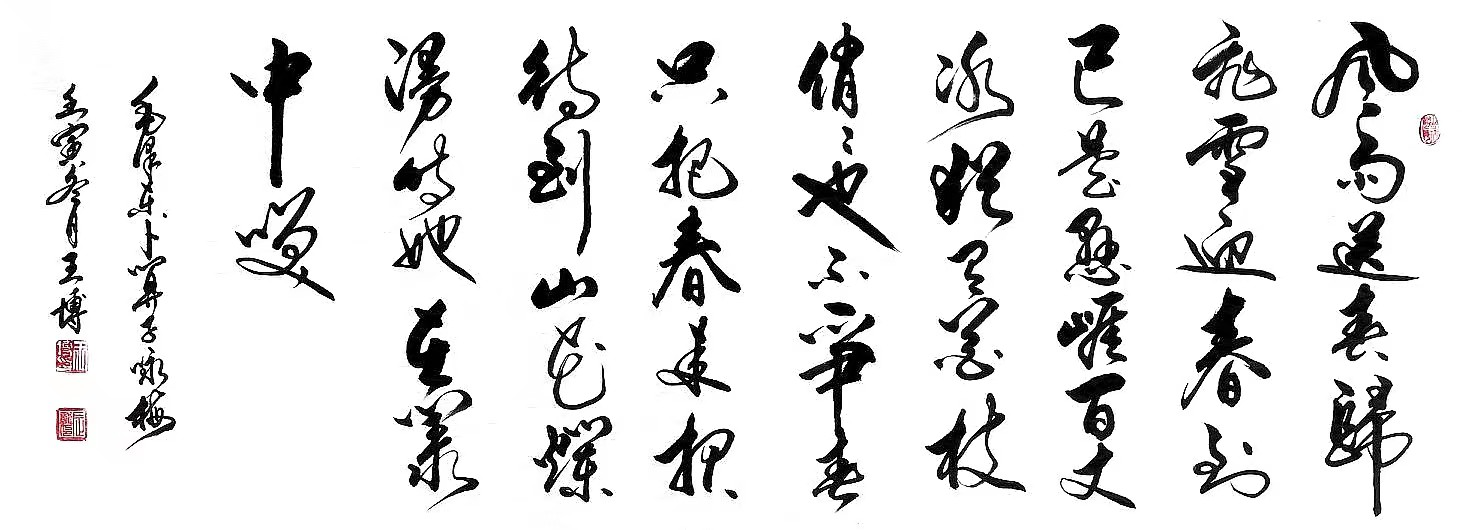 風雨送春歸
飛雪迎春到
已是懸崖百丈
冰猶有花枝
俏〻也不爭春
只把春來報
待到山花爛
漫時她在叢
中笑
毛澤東卜算子咏梅
壬寅冬月王博